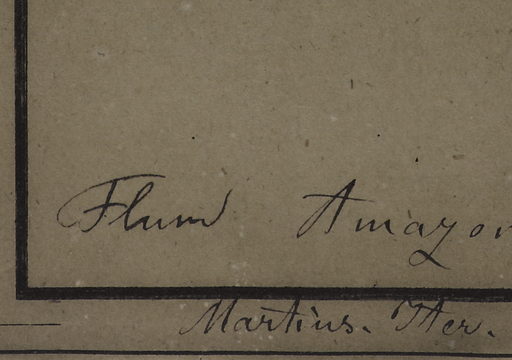 Flum Amazon
Martius. Iter.